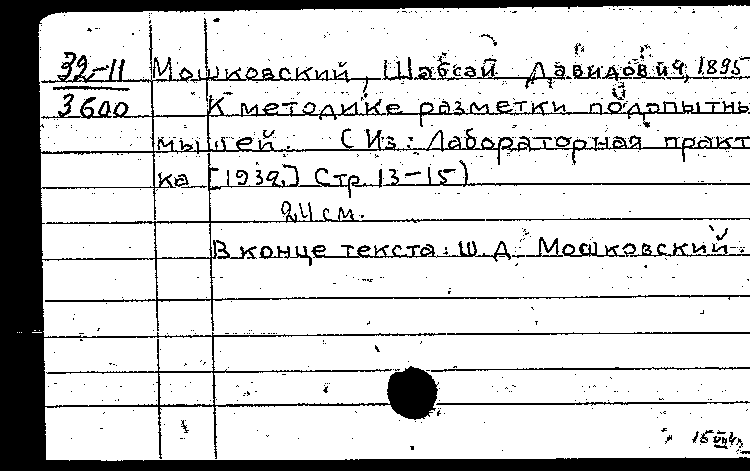 32-11
3600
Мошковский, Шабсай Давидович, 1895
К методике разметки подопытны
мышей. (Из: Лабораторная практ
ка [1932.] Стр. 13-15)
24 см.
В конце текста: Ш. Д. Мошковский.